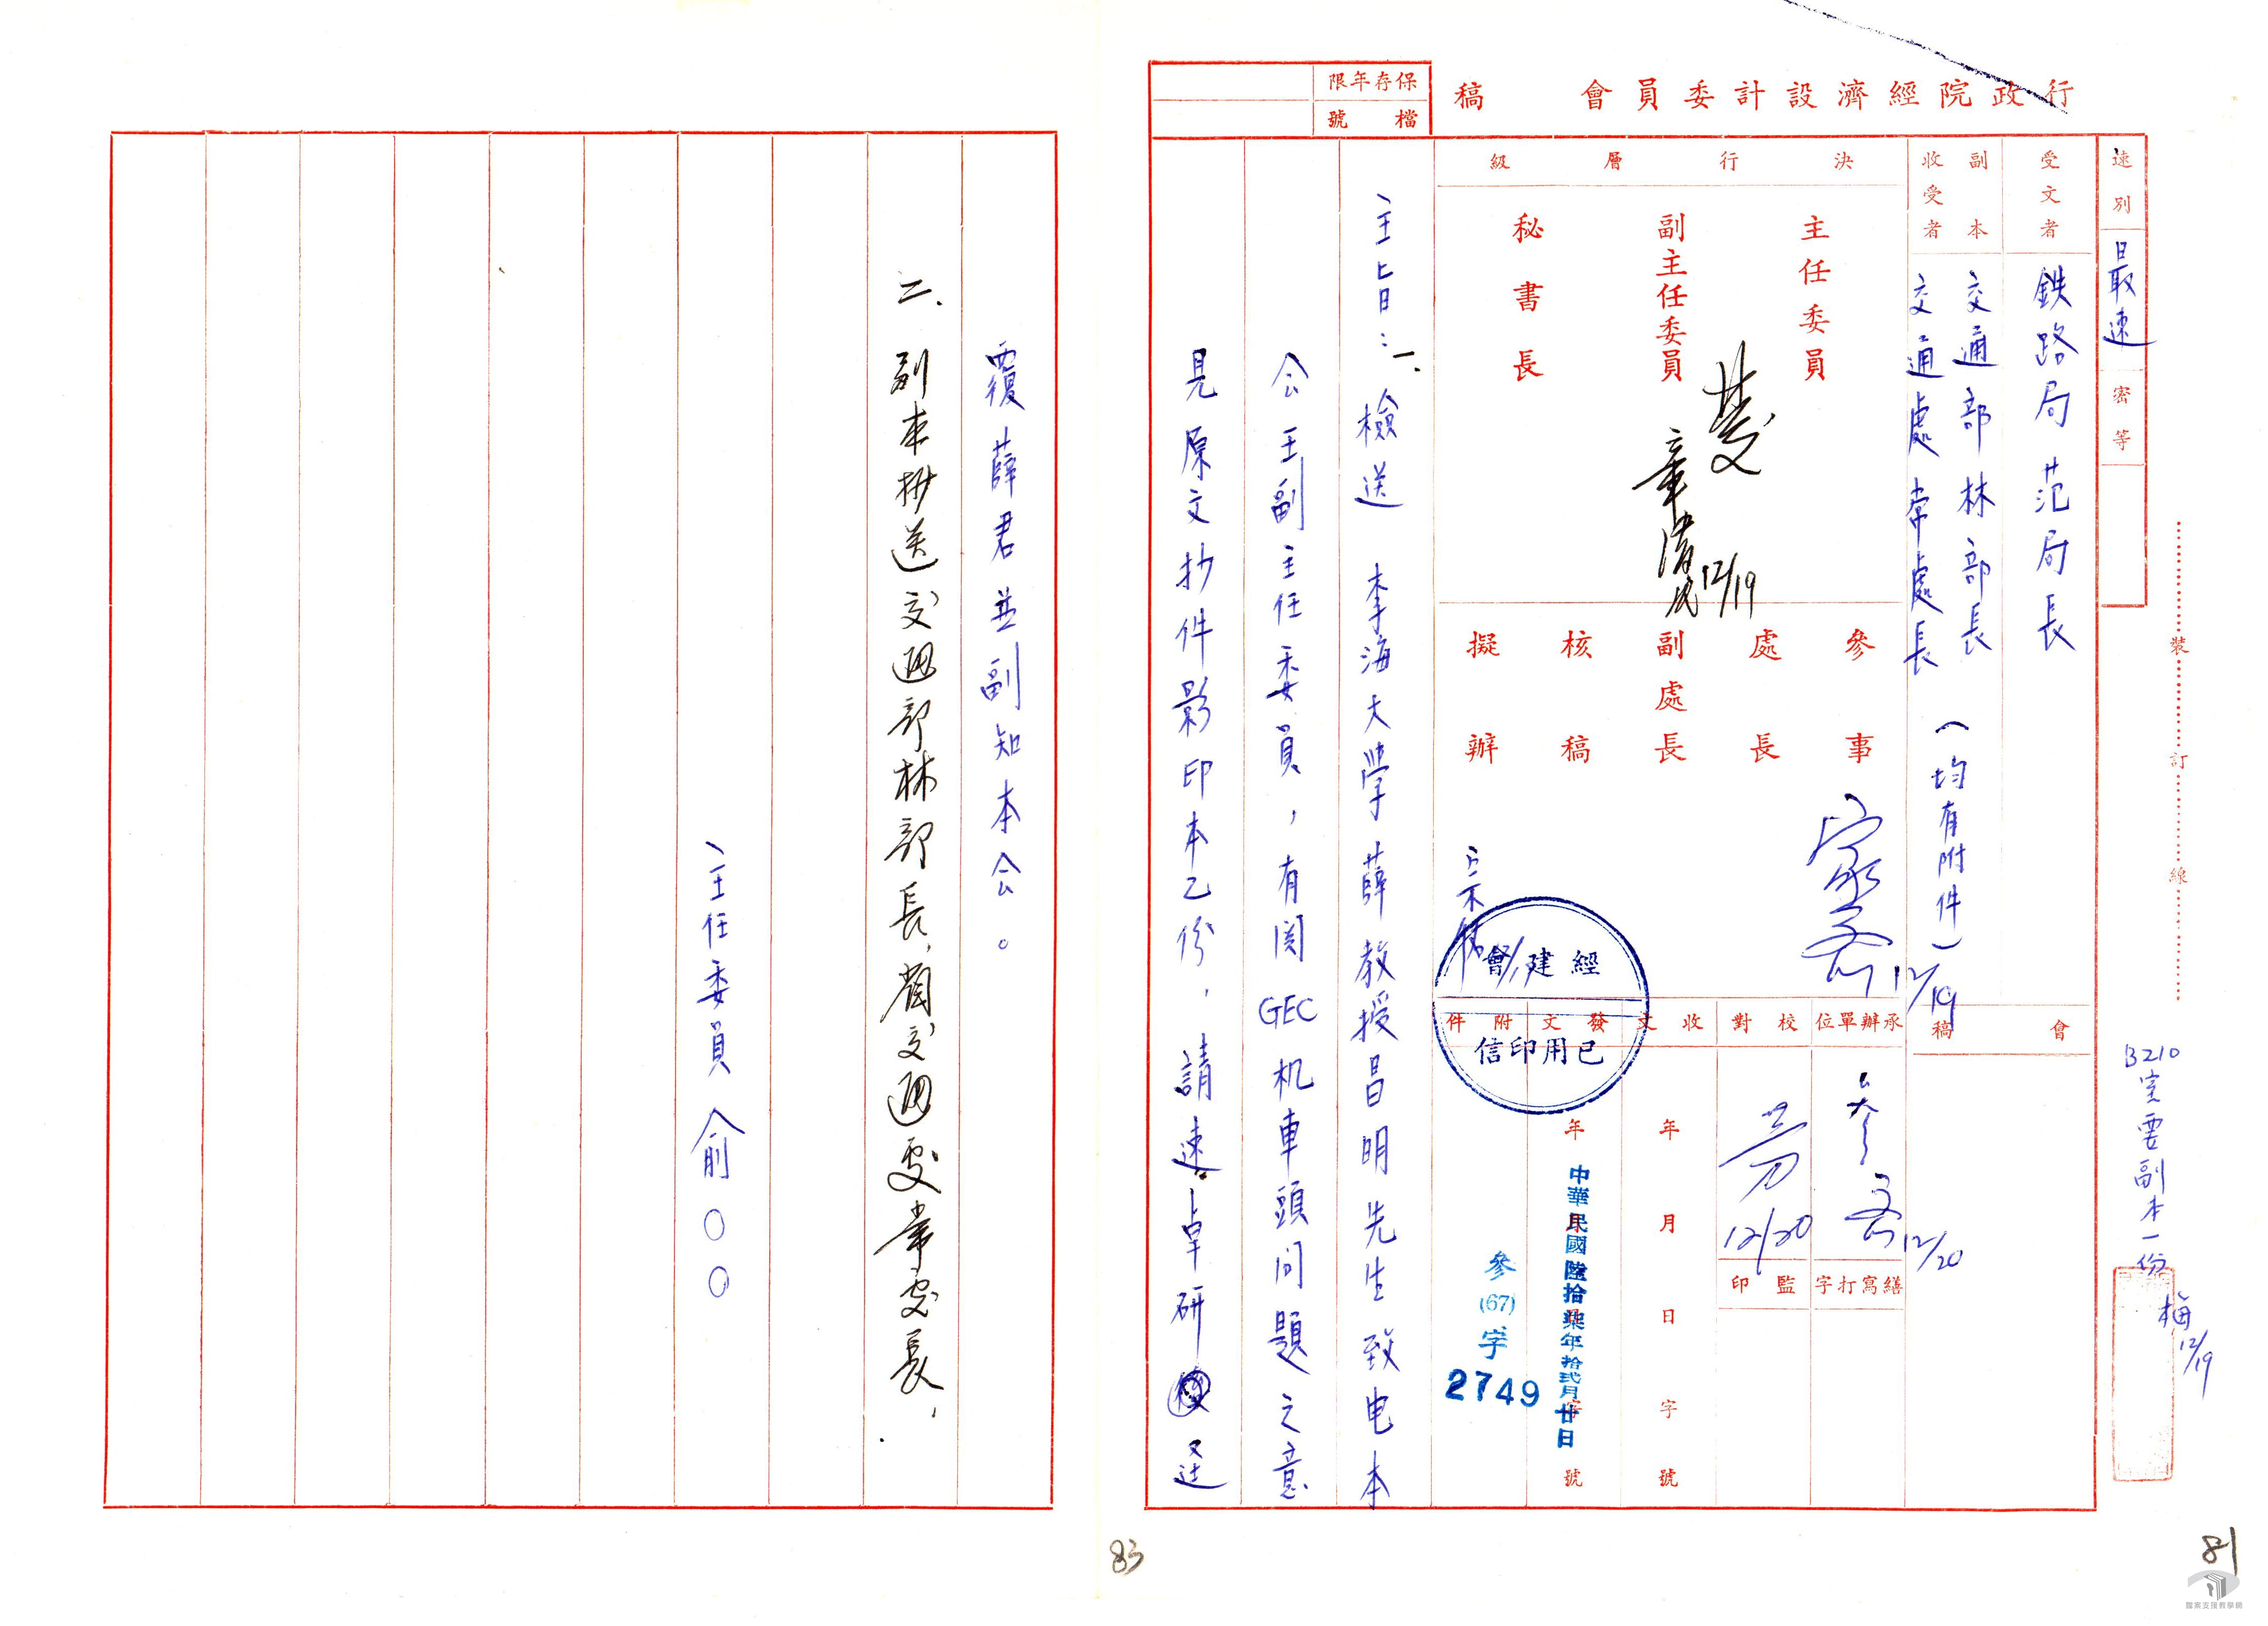 行政院經濟設計委員會　稿
保存年限
檔號
速別　最速　密等
受文者　鉄路局范局長
副本收受者　交通部林部長
交通處常處長（均有附件）
決行層級
主任委員
副主任委員
秘書長
章
12/19
參事
處長
副處長
核稿
擬辦
12/19
經建會
已用印信
會稿
承辦單位
12/20
校對
12/20
繕寫打字
監印
收文　年月日　字號
發文　年　號
中華民國陸拾柒年拾弍月廿日
附件
參(67)字
2749
主旨：一、檢送　李海大學薛教授昌明先生致电本
会王副主任委員，有関GEC机車頭问題之意
見原文抄件影印本乙份，請速卓研逕
覆薛君並副知本会。
二、副本抄送交通部林部長，省交通處常處長，
主任委員俞○○
裝訂線
B210室要副本一份
梅12/19
81
83
檔案支援教學網